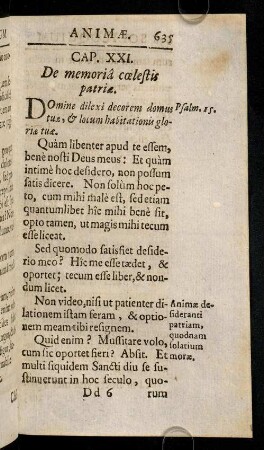 ANIMÆ. 635
CAP. XXI.
De memoriâ cœlestis
patriæ.
Domine dilexi decorem domus
tuæ, & locum habitationis glo-
riæ tuæ.
Psalm. 25.
Quàm libenter apud te essem,
benè nosti Deus meus: Et quàm
intimè hoc desidero, non possum
satis dicere. Non solùm hoc pe-
to, cum mihi malè est, sed etiam
quantumlibet hîc mihi benè sit,
opto tamen, ut magis mihi tecum
esse liceat.
Sed quomodo satisfiet deside-
rio meo? Hîc me esse tædet, &
oportet; tecum esse liber, & non-
dum licet.
Non video, nisi ut patienter di-
lationem istam feram, & optio-
nem meam tibi resignem.
Animæ de-
sideranti
patriam,
quodnam
solatium
moræ.
Quid enim? Mussitare volo,
cum sic oportet fieri? Absit. Et
multi siquidem Sancti diu se su-
stinuerunt in hoc seculo, quo-
Dd 6 rum